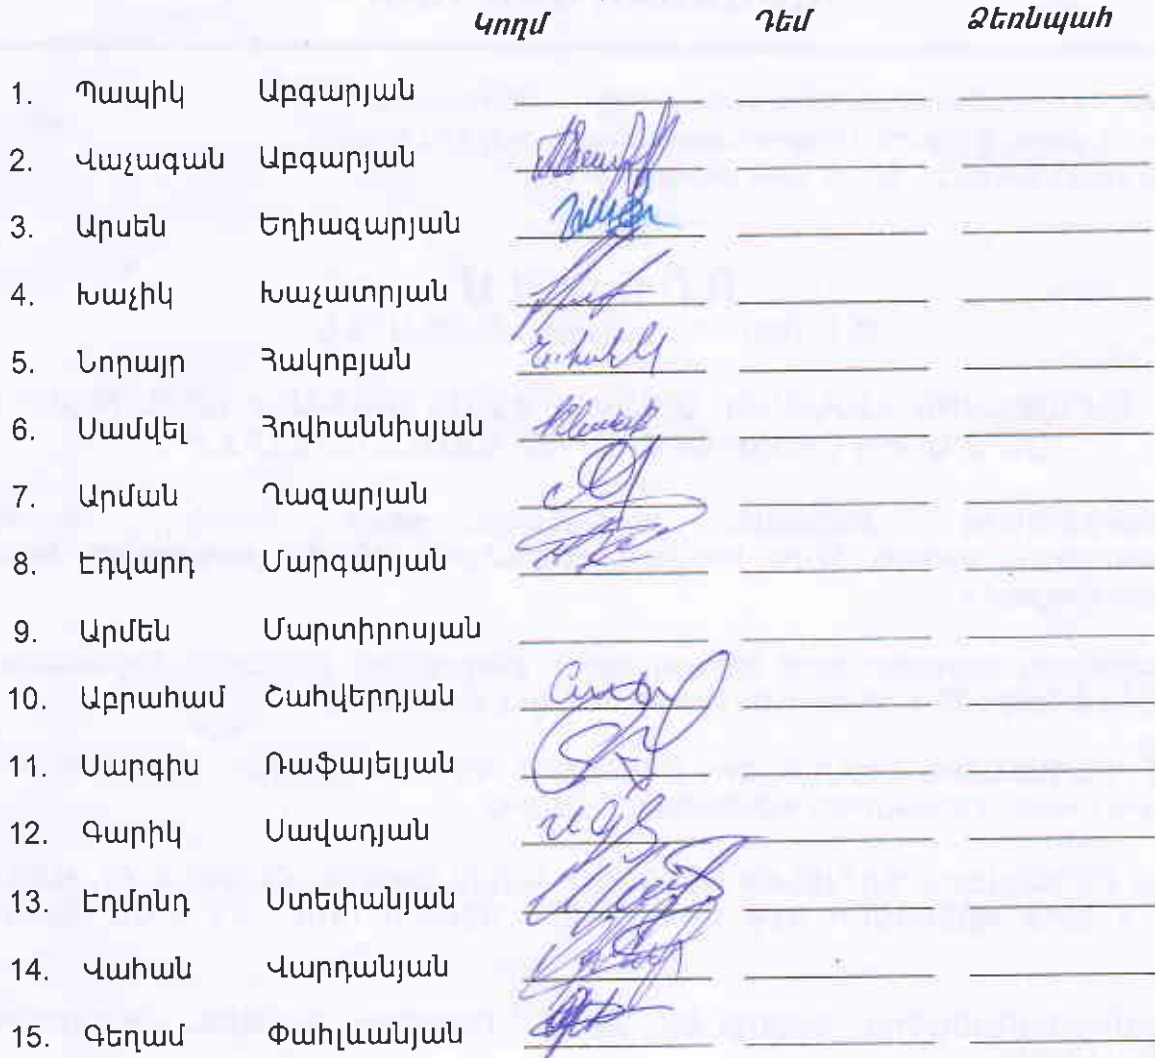 Կողմ Դեմ Ձեռնպահ
1. Պապիկ Աբգարյան
2. Վաչագան Աբգարյան
3. Արսեն Եղիազարյան
4. Խաչիկ Խաչատրյան
5. Նորայր Հակոբյան
6. Սամվել Հովհաննիսյան
7. Արման Ղազարյան
8. Էդվարդ Մարգարյան
9. Արմեն Մարտիրոսյան
10. Աբրահամ Շահվերդյան
11. Սարգիս Ռաֆայելյան
12. Գարիկ Սավադյան
13. Էդմոնդ Ստեփանյան
14. Վահան Վարդանյան
15. Գեղամ Փահլևանյան